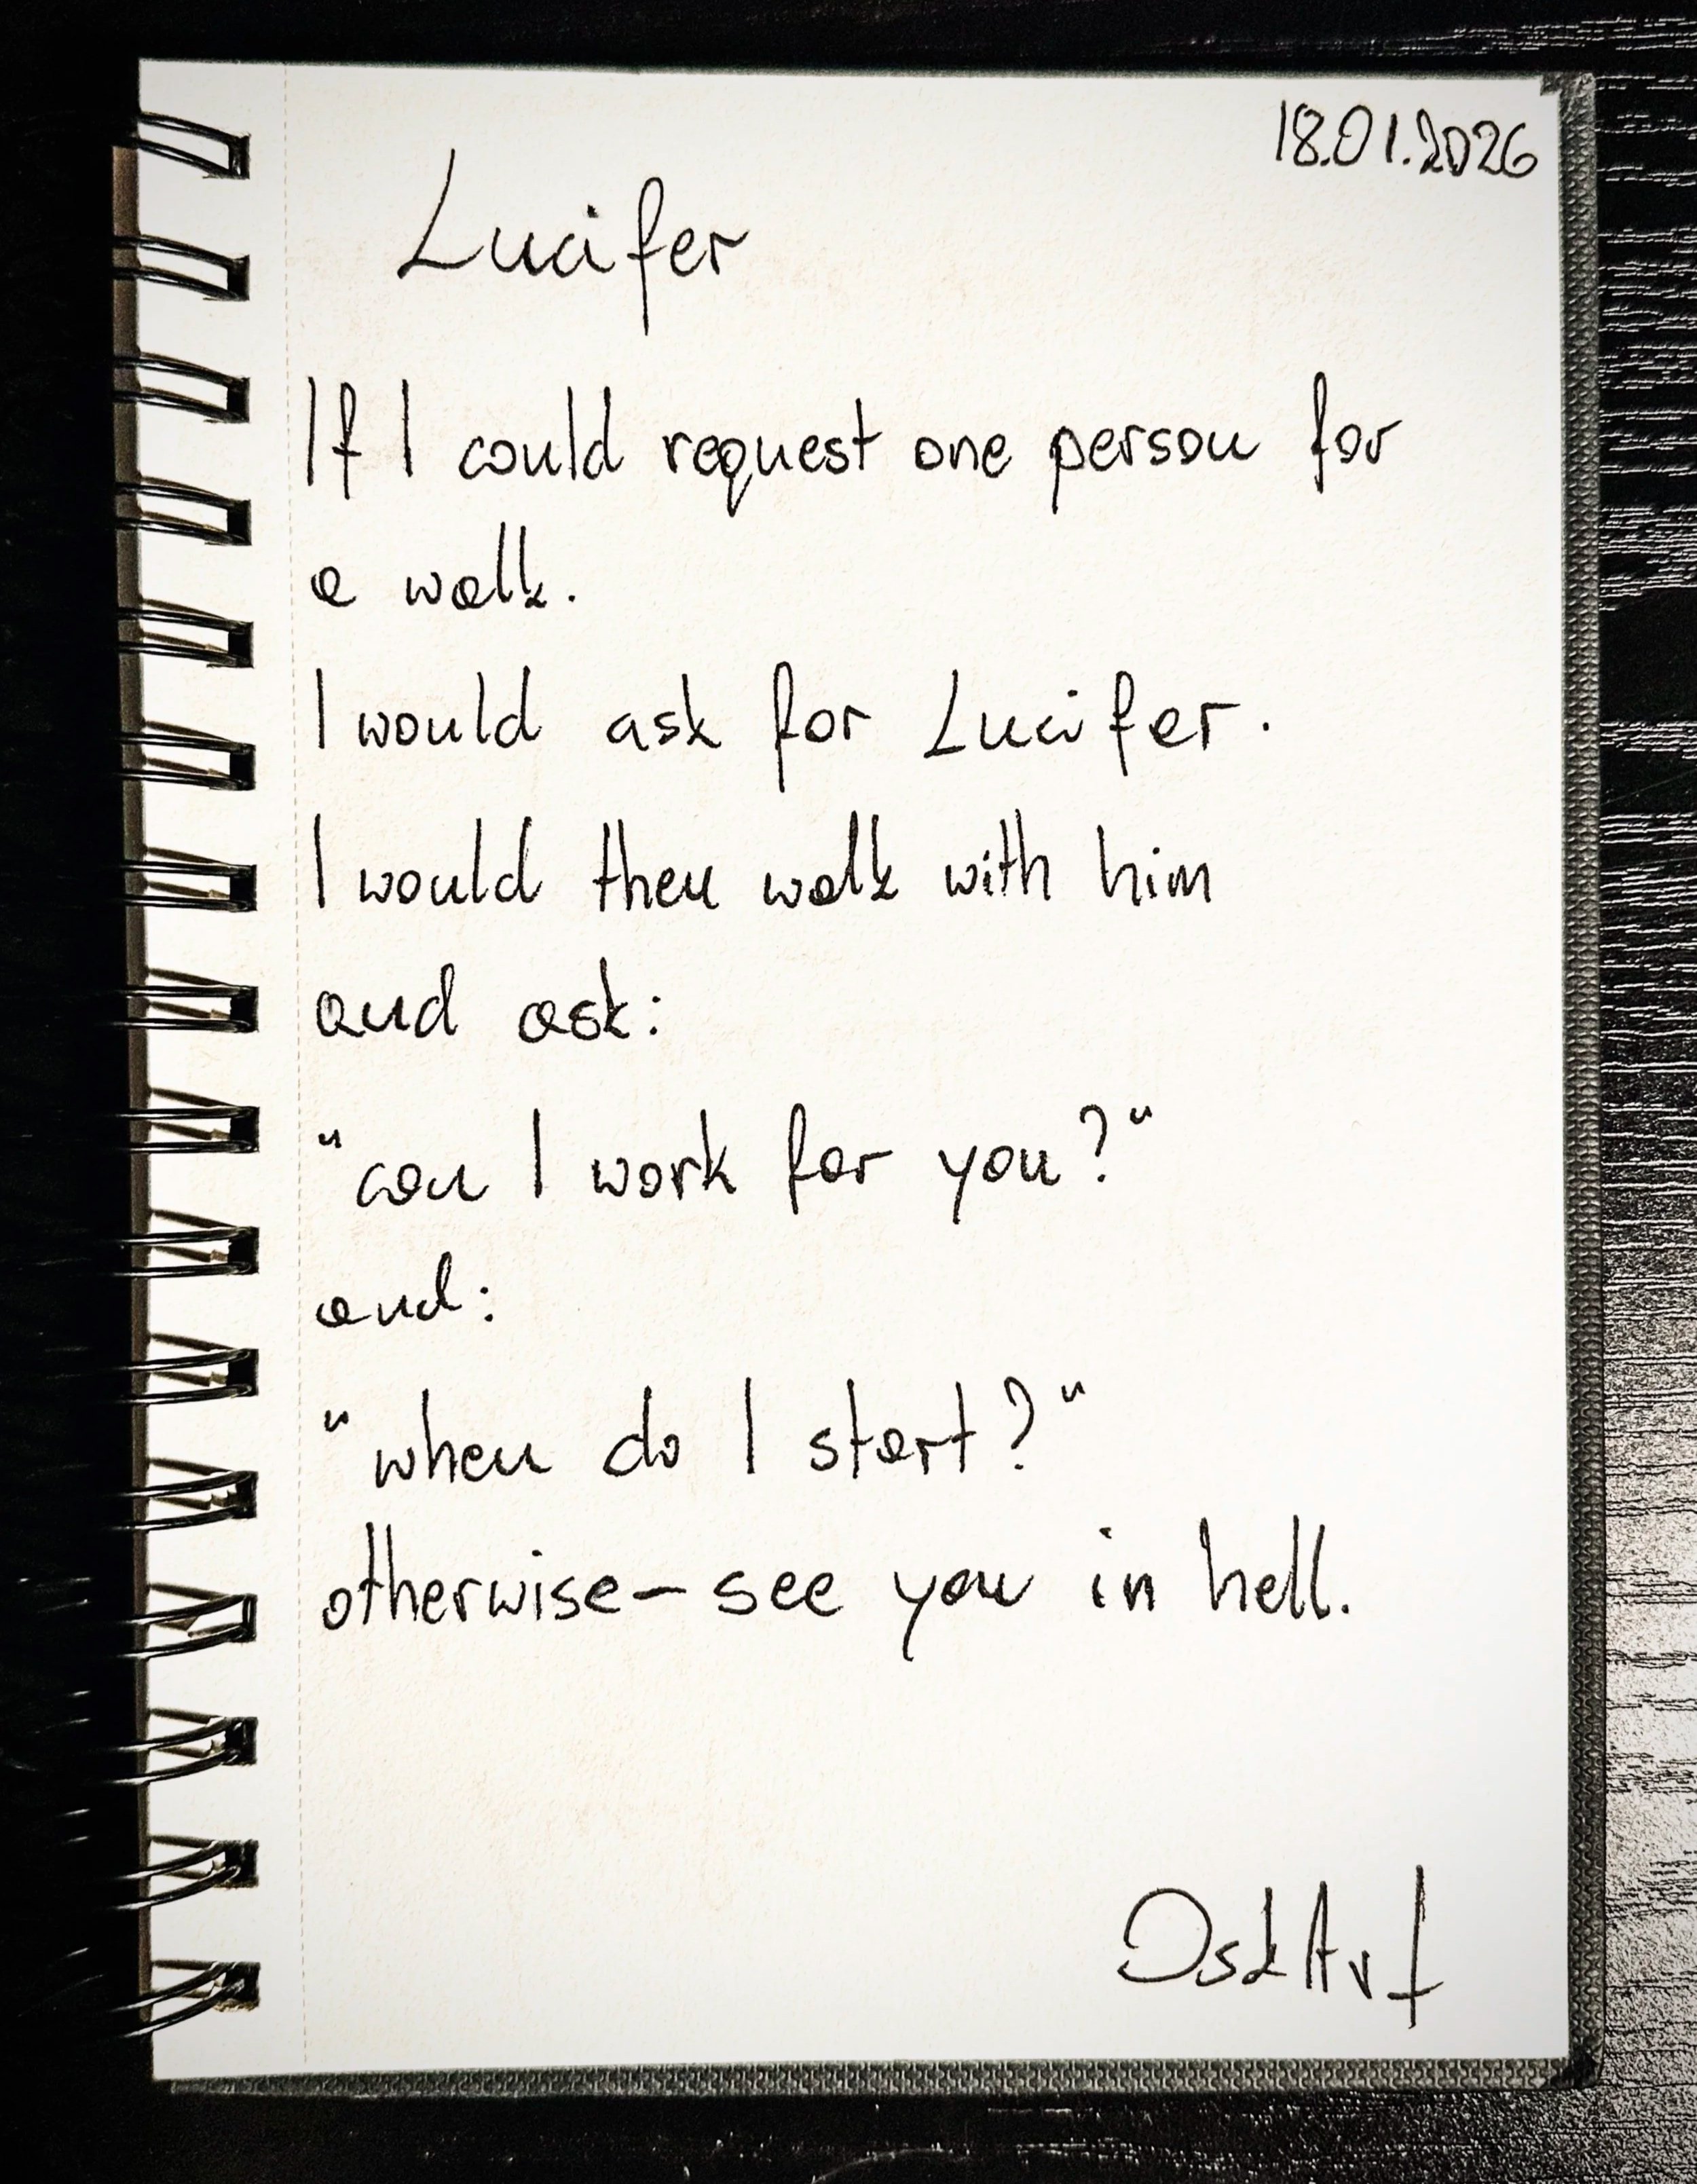 18.01.2026
Lucifer
If I could request one person for
a walk.
I would ask for Lucifer.
I would then walk with him
and ask:
"can I work for you?"
and:
"when do I start?"
otherwise – see you in hell.
OskArt